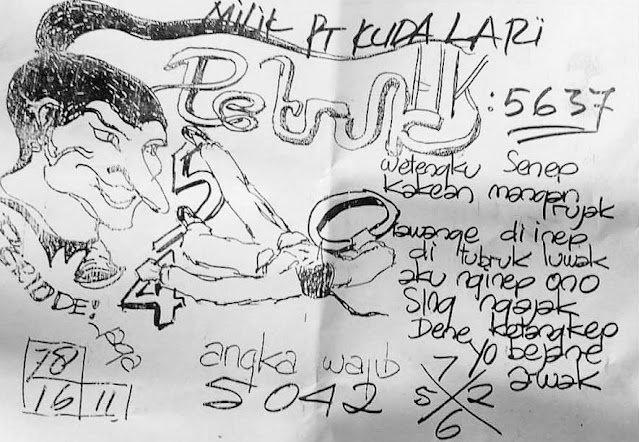 MiLiK PT KUDA LARi
Petruk HK : 5637
wetengku Senep
kakean mangan
rujak
lawange di inep
di tubruk luwak
aku nginep ono
Sing ngajak
Dene ketangkep
yo bejane
awak
5
4
PERIODE!
angka wajib
5042
78
16 11
7
5 2
6